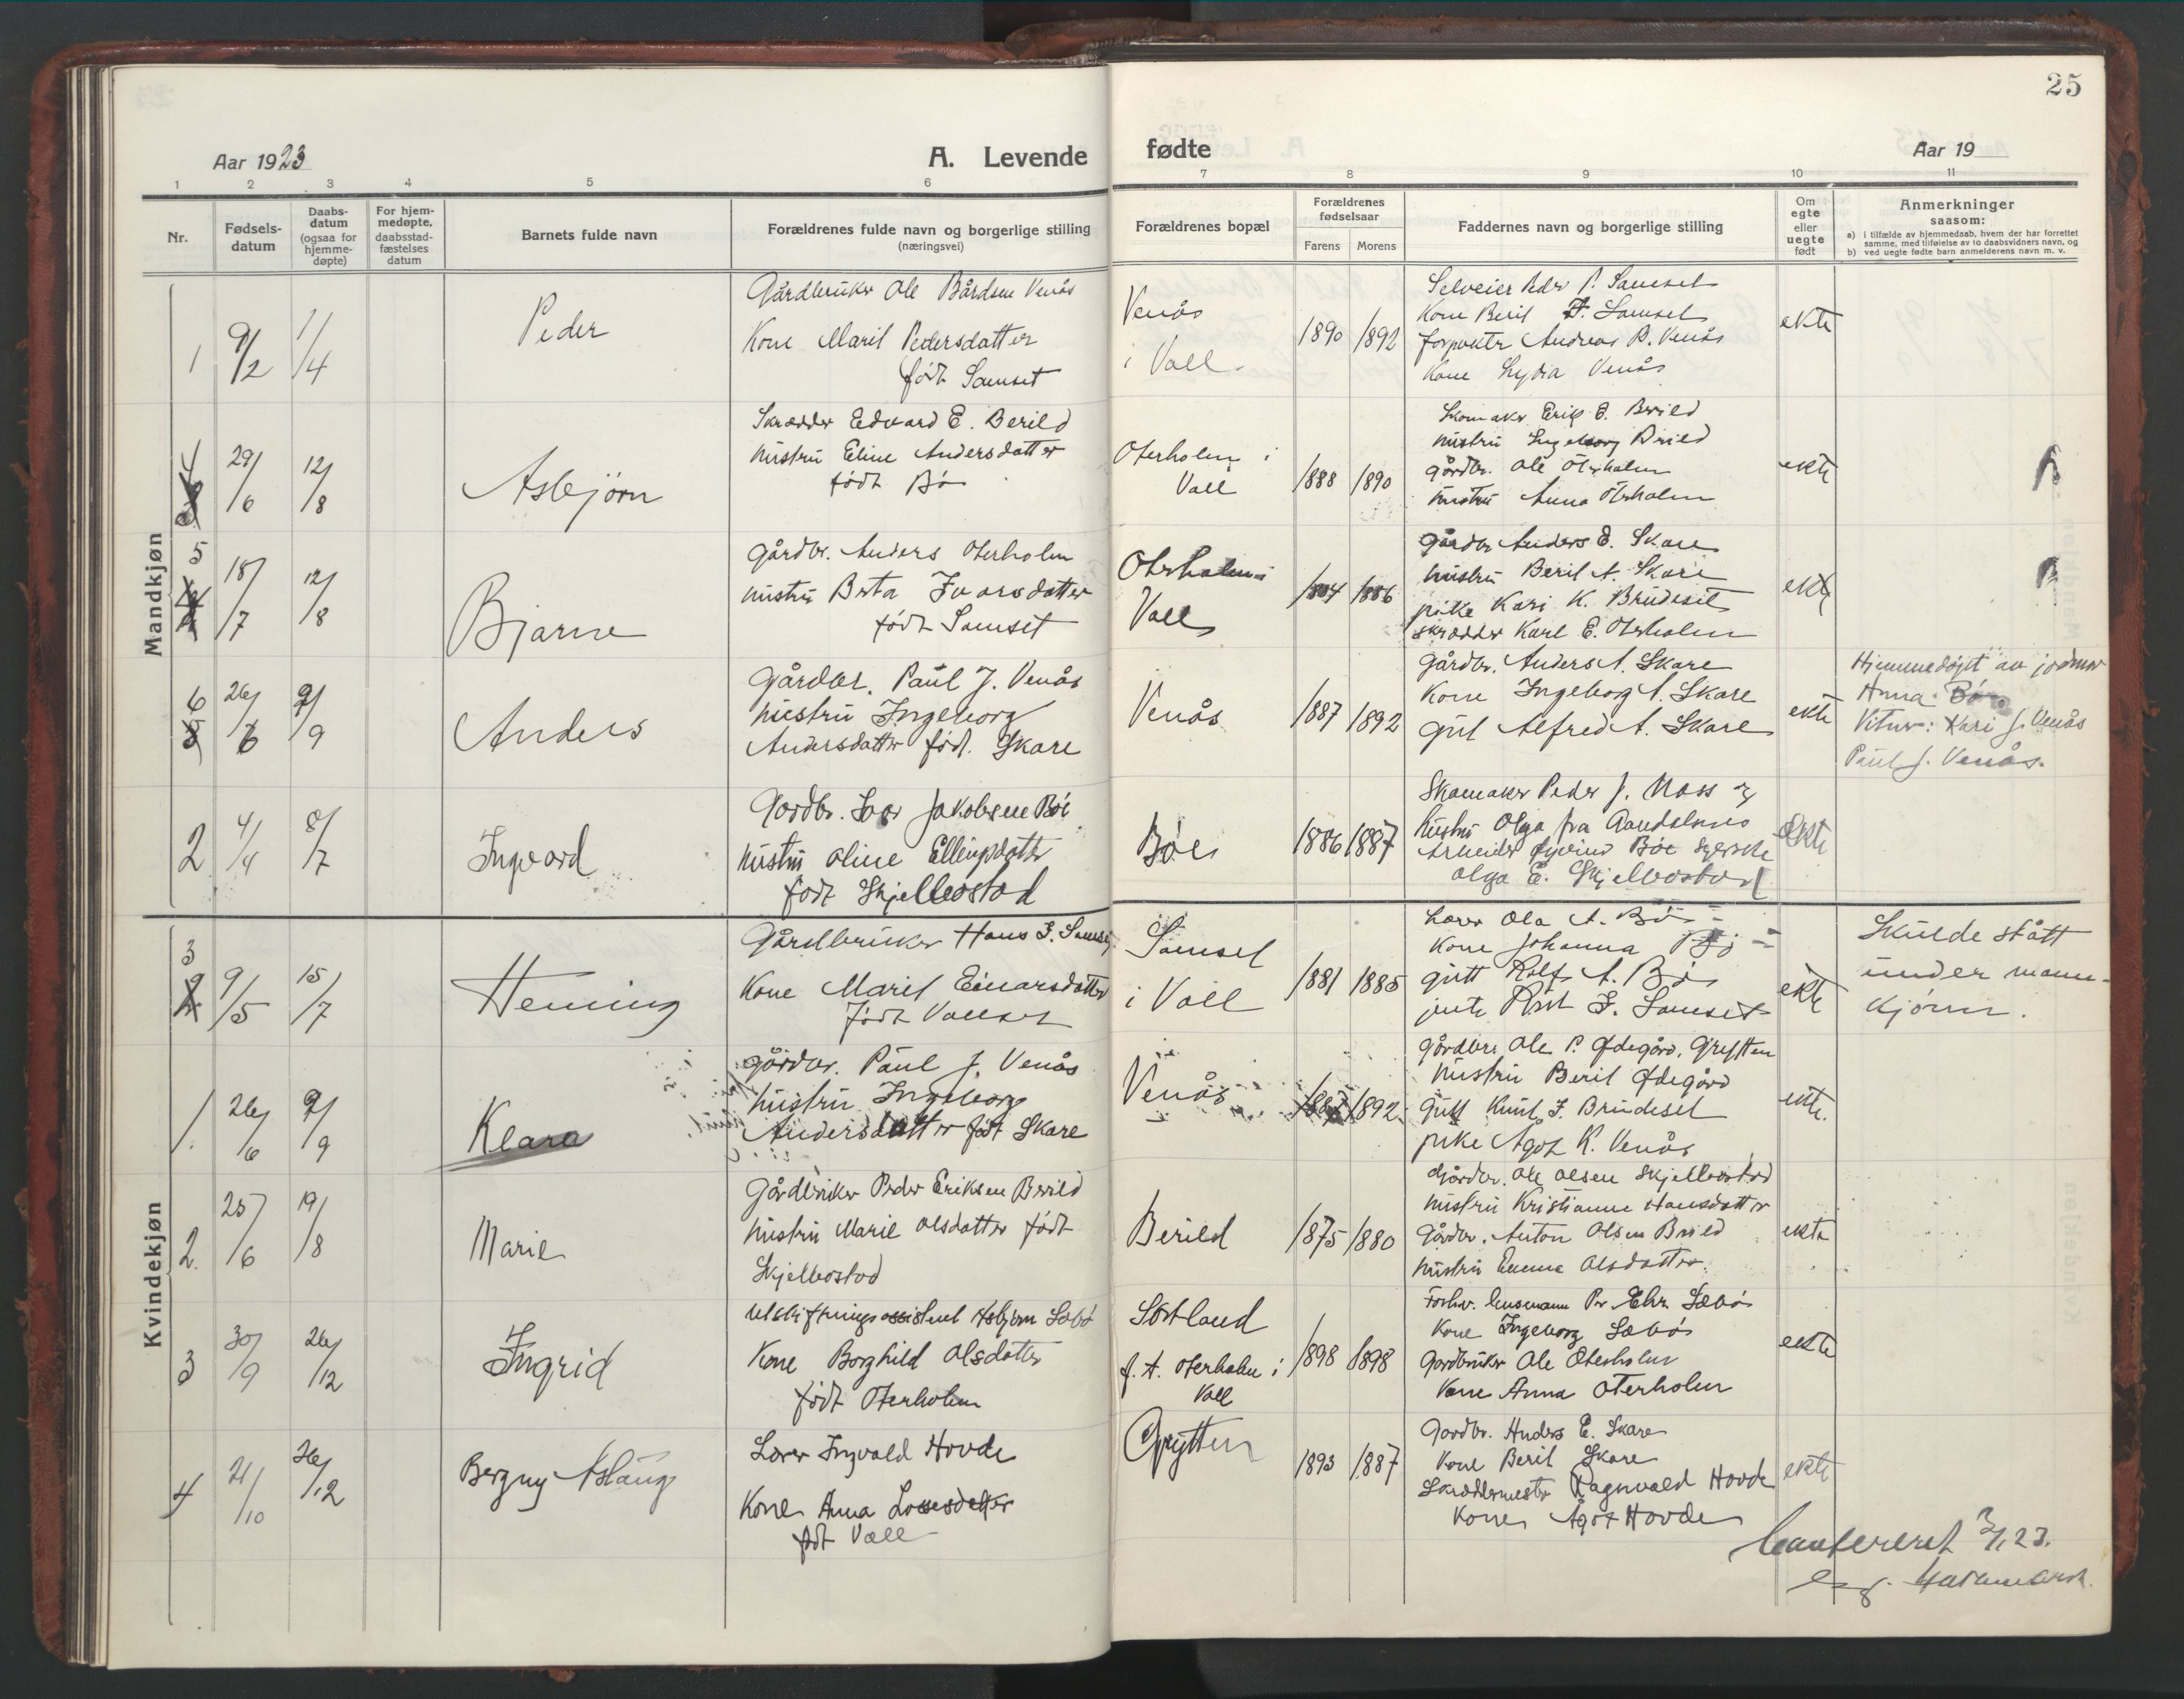 25
Aar 1923 A. Levende fødte Aar 19
1 2 3 4 5 6 7 8 9 10 11
Nr. Fødsels-datum Daabs-datum (ogsaa for hjemme-døpte) For hjem-medøpte, daabsstad-fæstelses datum Barnets fulde navn Forældrenes fulde navn og borgerlige stilling (næringsvei) Forældrenes bopæl Forældrenes fødselsaar Farens Morens Faddernes navn og borgerlige stilling Om egte eller uegte født Anmerkninger saasom:
a) i tilfælde av hjemmedaab, hvem der har forrettet samme, med tilføielse av to daabsvidners navn, og
b) ved uegte fødte barn anmelderens navn m. v.
Mandkjøn
1 9/2 1/4 Peder
Gårdbruker Ole Bårdsen Venås
Kone Marit Pedersdatter
født Samset
Venås
i Vall
1890 1892
Selveier Peder P. Samset
Kone Berit Samset
Forpakter Andreas B. Venås
Kone Lydia Venås
ekte
4 29/6 12/8 Asbjörn
Skrædder Edvard E. Berild
hustru Eline Andersdatter
født Bö
Oterholm i
Vall
1888 1890
Skomaker Erik E. Berild
hustru Ingeborg Berild
gårdbr. Ole Oterholm
hustru Anna Oterholm
ekte
5 18/7 12/8 Bjarne
Gårdbr. Anders Oterholm
hustru Berta Ivarsdatter
født Samset
Oterholm i
Vall
1884 1886
Gårdbr. Anders E. Skare
hustru Berit A. Skare
pike Kari K. Brudeset
skrædder Karl E. Oterholm
ekte
6 26/6 9/9 Anders
Gårdbr. Paul J. Venås
hustru Ingeborg
Andersdatter född. Skare
Venås
1887 1892
Gårdbr. Anders A. Skare
Kone Ingeborg A. Skare
gut Alfred A. Skare
ekte
Hjemmedøpt av jordmor
Anna Bö
Vitner: Kari J. Venås
Paul J. Venås.
2 4/4 8/7 Ingvard
Gardbr. Ivar Jakobsen Böe
hustru Oline Ellingsdatter
født Skjelbostad
Böe
1886 1887
Skomaker Peder J. Moss og
hustru Olga fra Aandalsnes
Arbeider Øyvind Böe syerske
Olga E. Skjelbostad
ekte
3 9/5 15/7 Heming
Gårdbruker Hans I. Samset
Kone Marit Einarsdatter
født
Samset
i Vall
1881 1885
Lærer Ola A. Bö
Kone Johanna Bö
gutt Rolf A. Bö
jente I. Samset
ekte
Skulde stått
under mann-
kjönn.
Kvindekjøn
1. 26/6 9/9 Klara
Gårdbr. Paul J. Venås
hustru Ingeborg
Andersdatter født Skare
Venås
1887 1892
Gårdbr. Ole P. Ødegård, Grytten
hustru Berit Ødegård
Gutt Knut I. Brudeset
pike Agot K. Venås
ekte.
2. 25/6 19/8 Marie
Gårdbruker Peder Eriksen Berild
hustru Marie Olsdatter født
Skjelbostad
Berild
1875 1880
Gårdbr. Ole Olsen Skjelbostad
hustru Kristianne Hansdatter
Gårdbr. Anton Olsen Berild
hustru Emma Olsdatter.
ekte
3 30/9 26/12 Ingrid
Utskiftningsassistent Asbjörn Sæbö
Kone Borghild Olsdatter
født Oterholm
Sortland
f. t. Oterholm i
Vall
1898 1898
Forhv. lensmann Per Ehr. Sæbö
Kone Ingeborg Sæbö
Gardbruker Ole Oterholm
Kone Anna Oterholm
ekte
4 21/10 26/12 Bergny Aslaug
Lærer Ingvald Hovde
Kone Anna Lassesdatter
født Vall
Grytten
1893 1887
Gardbr. Anders E. Skare
Kone Berit Skare
Skræddermester Ragnvald Hovde
Kone Ågot Hovde
ekte
Confereret 23.